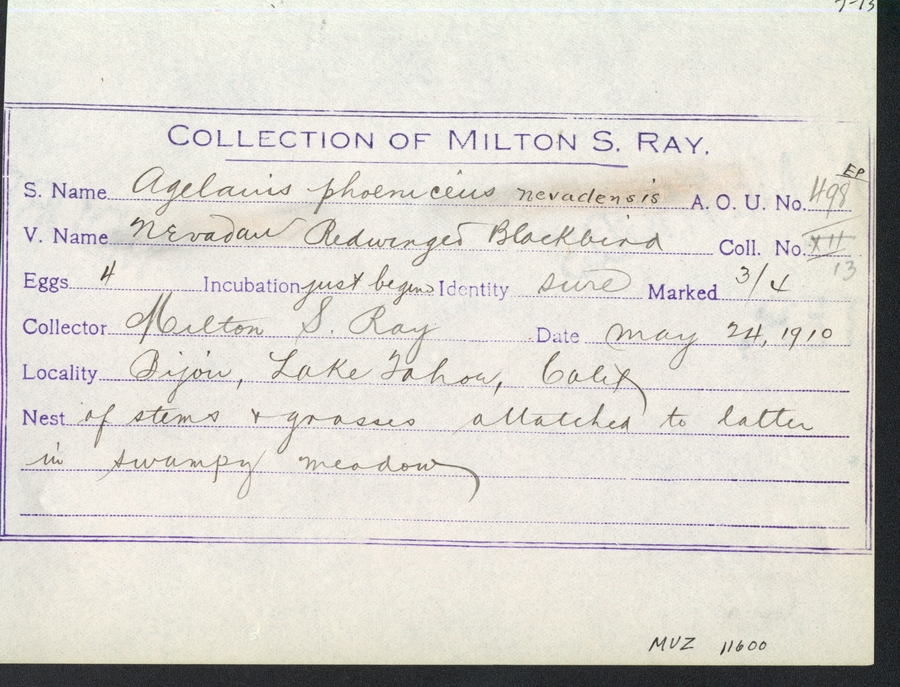 7-13
COLLECTION OF MILTON S. RAY.
EP
S. Name Agelaius phoeniceus nevadensis A. O. U. No. 498
V. Name Nevadan Redwinged Blackbird Coll. No. XII
13
Eggs 4 Incubation just begun Identity sure Marked 3/4
Collector Milton S. Ray Date May 24, 1910
Locality Bijou, Lake Tahoe, Calif
Nest of stems & grasses attatched to latter
in swampy meadow
MVZ 11600